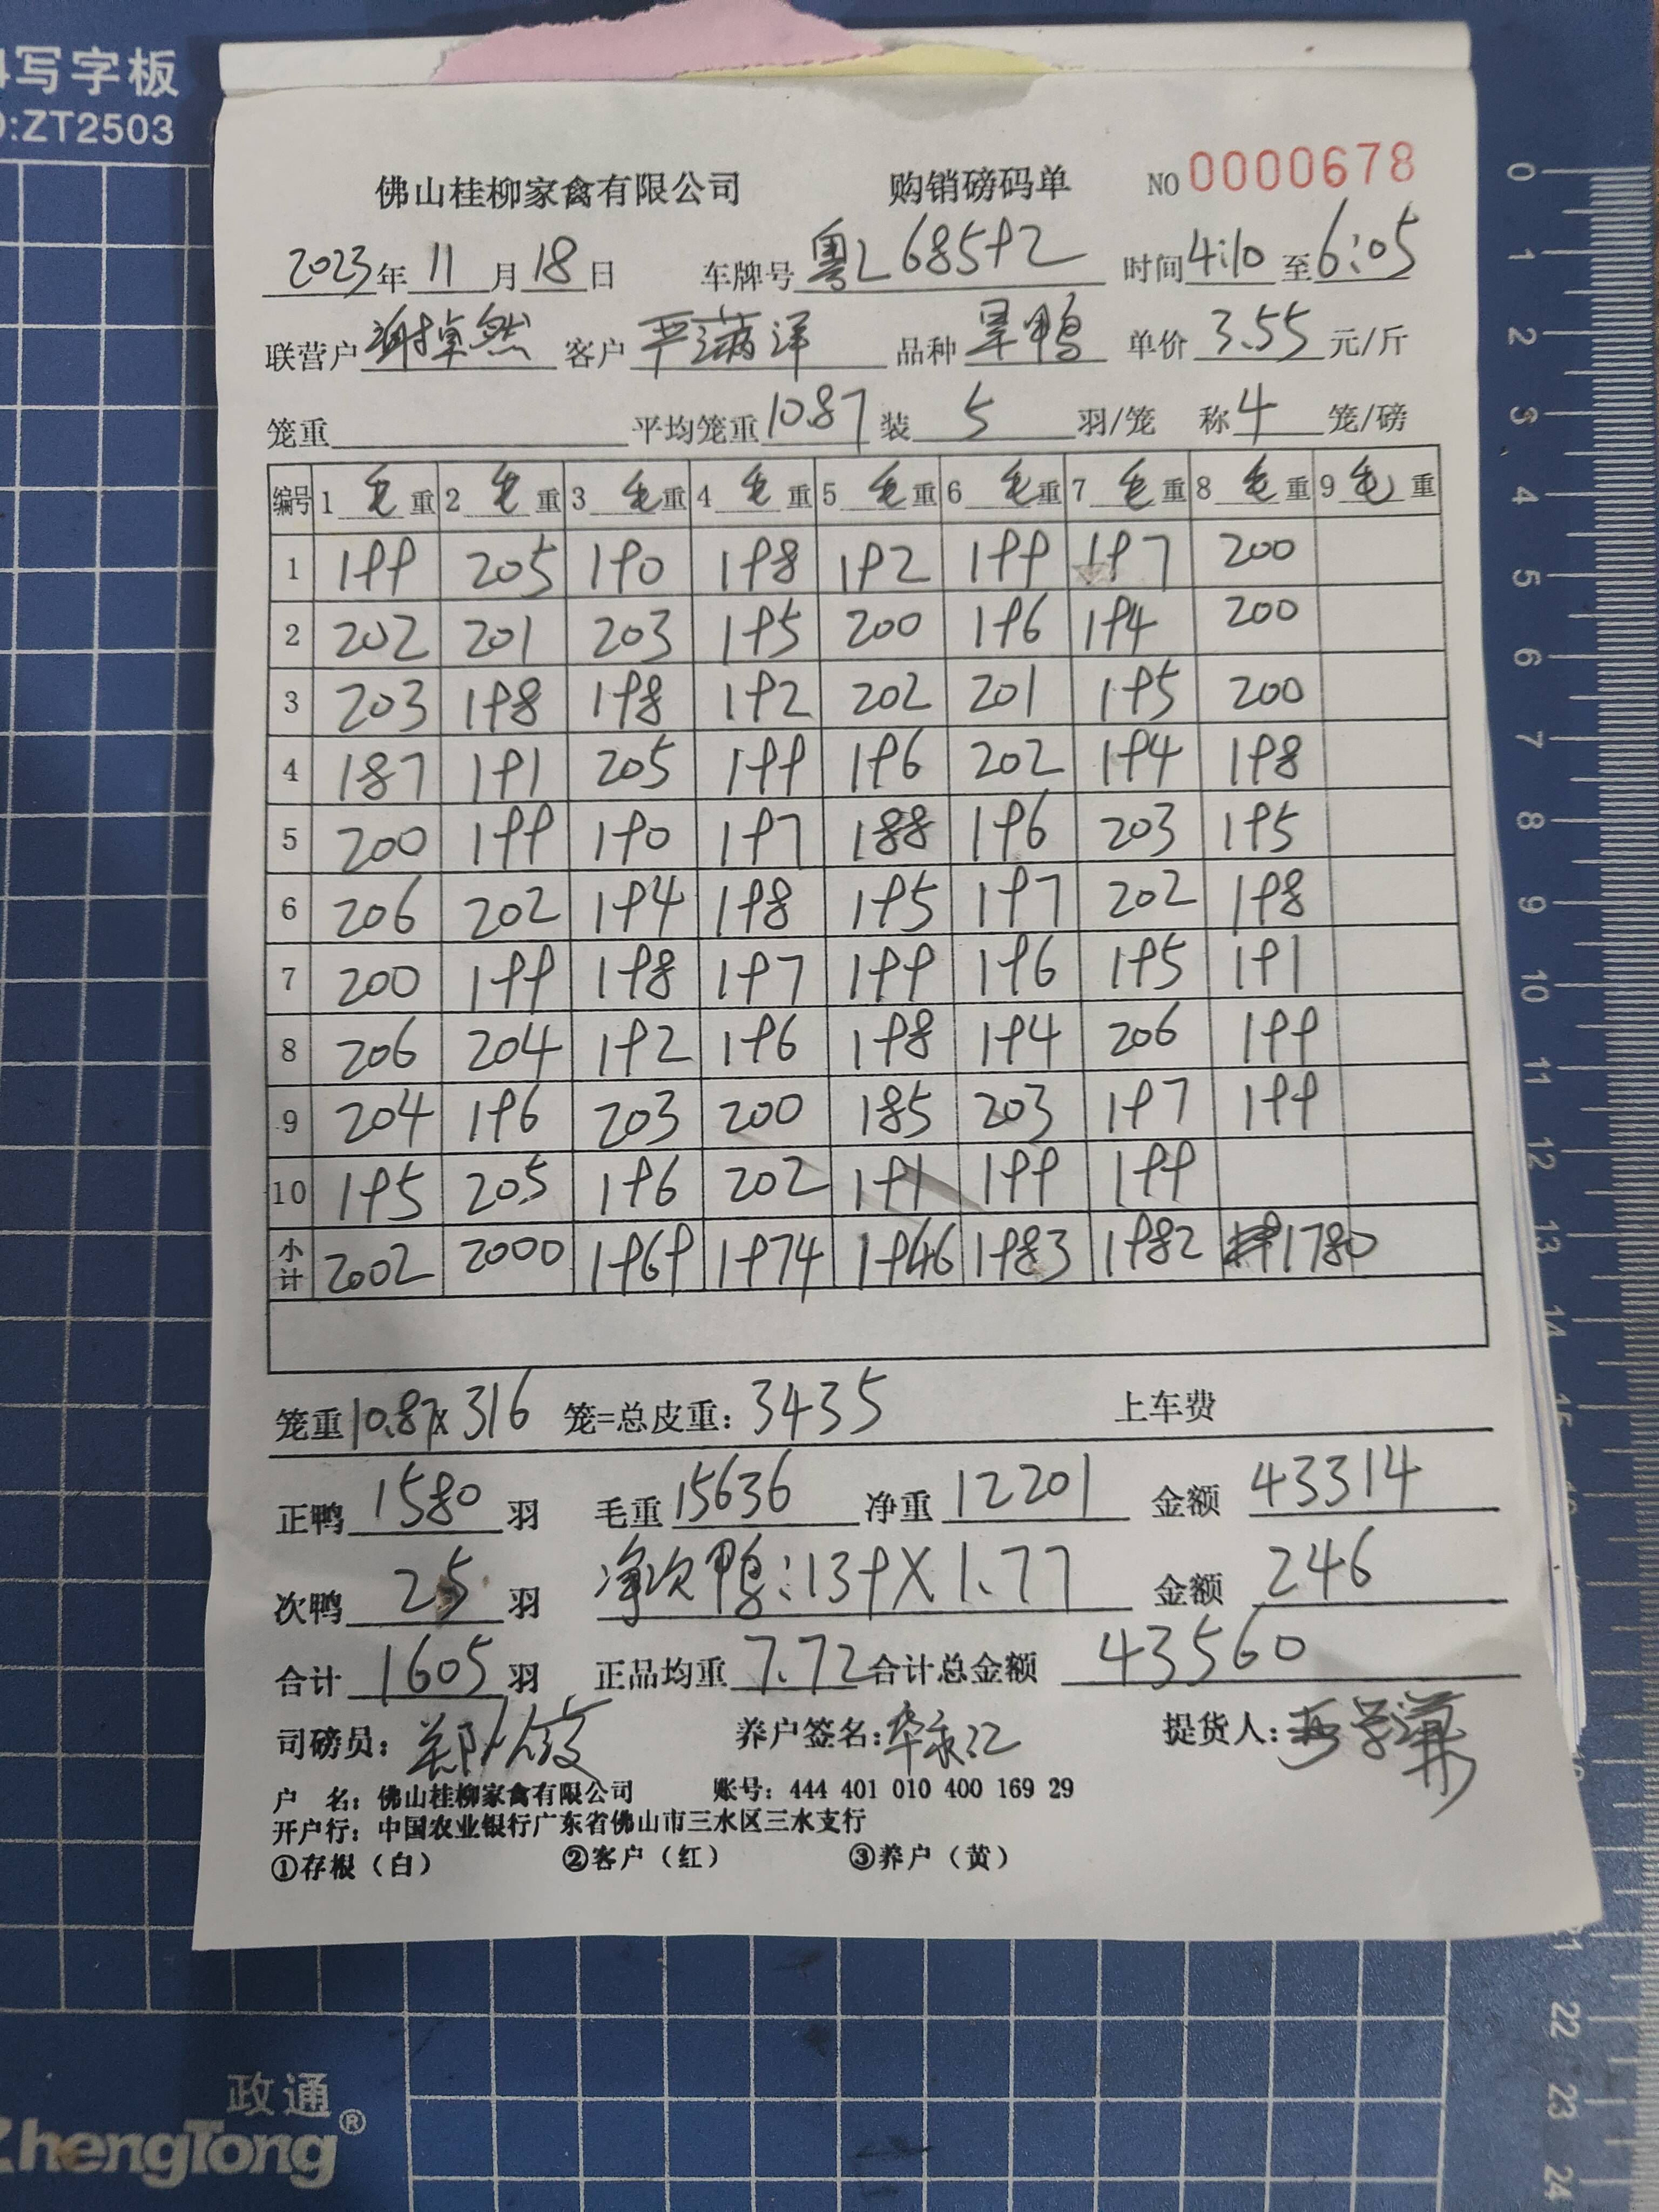 写字板
ZT2503
佛山桂柳家禽有限公司 购销磅码单 NO 0000678
2023年11月18日 车牌号粤L 68592 时间4:10至6:05
联营户谢掉然 客户严满洋 品种旱鸭 单价3.55元/斤
笼重 平均笼重10.87装5羽/笼 称4笼/磅
编号 1毛重 2毛重 3毛重 4毛重 5毛重 6毛重 7毛重 8毛重 9毛重
1 199 205 190 198 192 199 197 200
2 202 201 203 195 200 196 194 200
3 203 198 198 192 202 201 195 200
4 187 191 205 199 196 202 194 198
5 200 199 190 197 188 196 203 195
6 206 202 194 198 195 197 202 198
7 200 199 198 197 199 196 195 191
8 206 204 192 196 198 194 206 199
9 204 196 203 200 185 203 197 199
10 195 205 196 202 191 199 199
小计 2002 2000 1969 1974 1946 1983 1982 1780
笼重10.87x316 笼=总皮重：3435 上车费
正鸭1580羽 毛重15636 净重12201 金额43314
次鸭25羽 净次鸭：139X1.77 金额246
合计1605羽 正品均重7.72合计总金额43560
司磅员： 养户签名： 提货人：
户 名：佛山桂柳家禽有限公司 账号：444 401 010 400 169 29
开户行：中国农业银行广东省佛山市三水区三水支行
①存根（白） ②客户（红） ③养户（黄）
0 1 2 3 4 5 6 7 8 9 10 11 12 13 14 15 22 23 24
政通®
ZhengTong